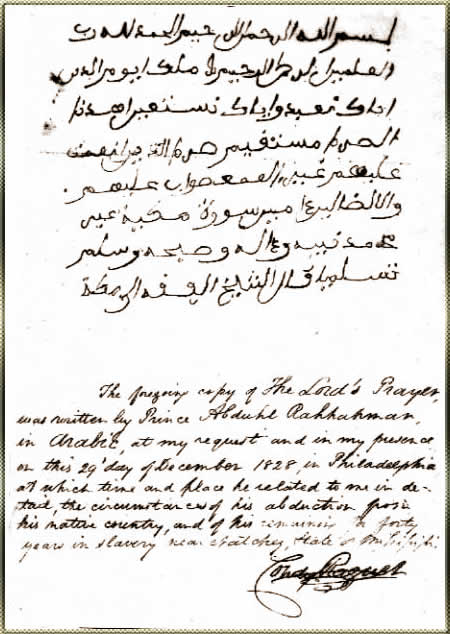 بسم الله الرحمن الرحيم الحمد لله رب
العلمين الرحمن الرحيم ملك يوم الدين
اياك نعبد واياك نستعين اهدنا
الصراط مستقيم صراط الذين انعمت
عليهم غير المغضوب عليهم
ولا الضالين امين سورة
محمد نبيه وءاله وصحبه وسلم
تسليما قال الشيخ
The foregoing copy of The Lord's Prayer,
was written by Prince Abduhl Rahhahman,
in Arabic, at my request and in my presence
on this 29th day of December 1828, in Philadelphia
at which time and place he related to me in de-
tail, the circumstances of his abduction from
his native country, and of his remaining forty
years in slavery near Natchez, State of Mississippi.
Condy Raguet